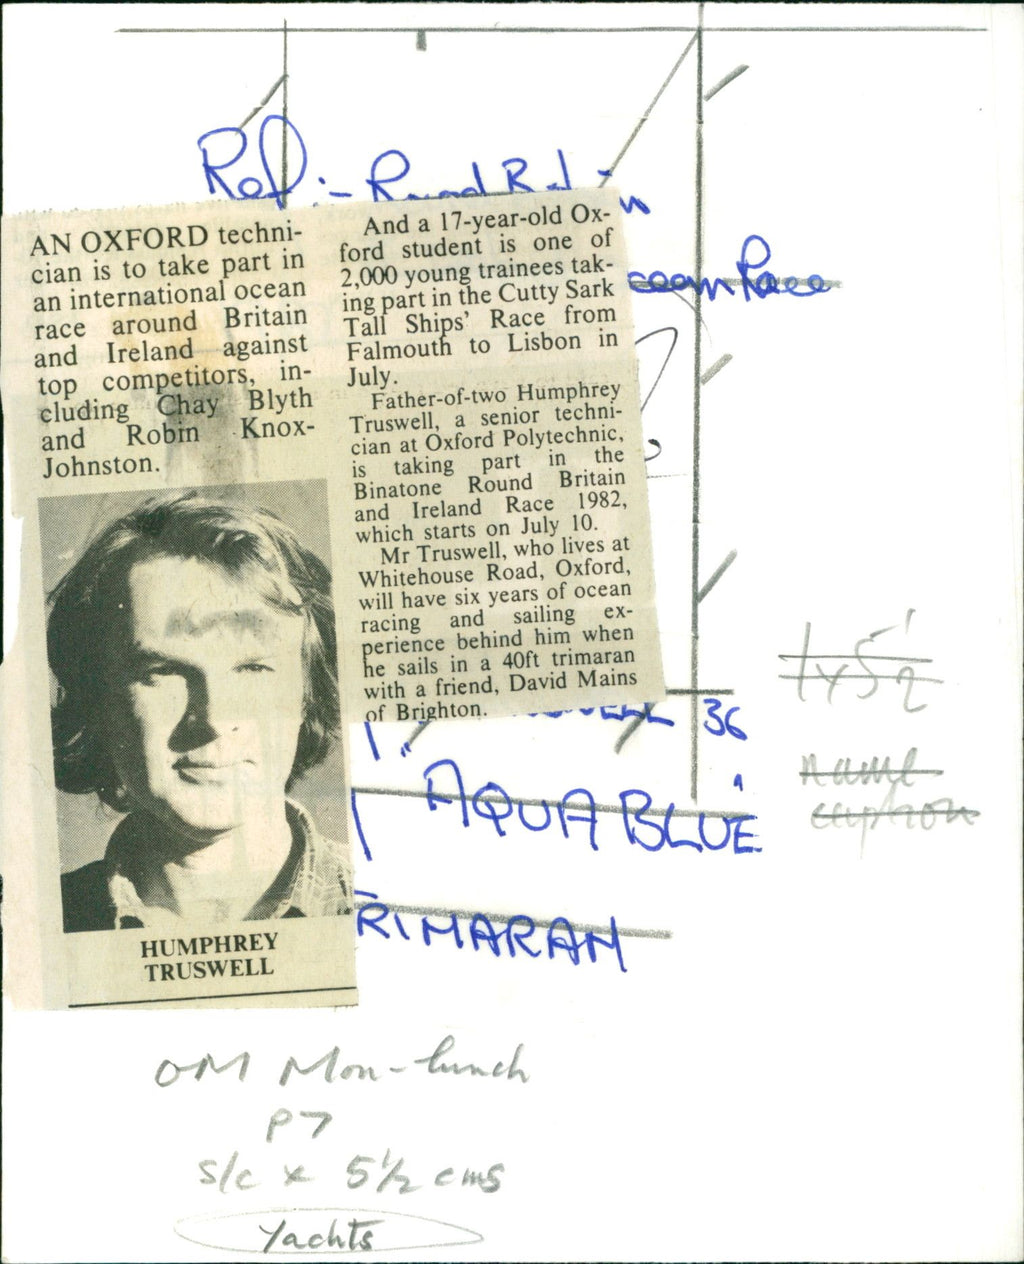 Ref:- Round Britain
Ocean Race
AN OXFORD techni-
cian is to take part in
an international ocean
race around Britain
and Ireland against
top competitors, in-
cluding Chay Blyth
and Robin Knox-
Johnston.
HUMPHREY
TRUSWELL
And a 17-year-old Ox-
ford student is one of
2,000 young trainees tak-
ing part in the Cutty Sark
Tall Ships' Race from
Falmouth to Lisbon in
July.
Father-of-two Humphrey
Truswell, a senior techni-
cian at Oxford Polytechnic,
is taking part in the
Binatone Round Britain
and Ireland Race 1982,
which starts on July 10.
Mr Truswell, who lives at
Whitehouse Road, Oxford,
will have six years of ocean
racing and sailing ex-
perience behind him when
he sails in a 40ft trimaran
with a friend, David Mains
of Brighton.
36
AQUA BLUE
RIMARAN
1 x 5½
name
caption
OM Mon-lunch
P7
s/c x 5½ cms
Yachts